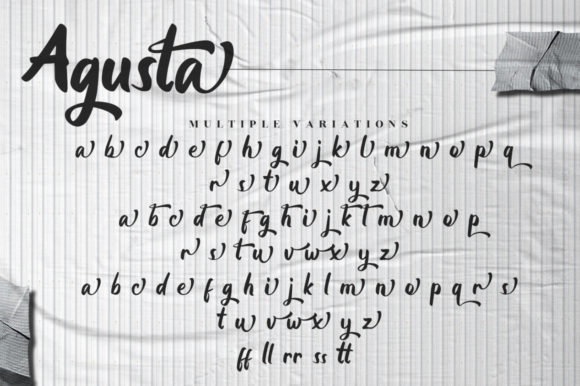 Agusta
MULTIPLE VARIATIONS
a b c d e f h g i j k l m n o p q
r s t u x y z
a b c d e f g h i j k l m n o p
r s t u v w x y z
a b c d e f g h i j k l m n o p q r s
t u v w x y z
ff ll rr ss tt